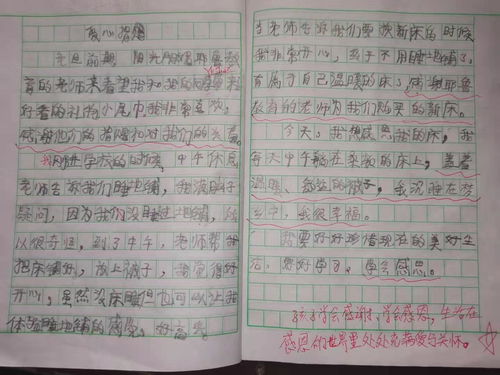 爱心捐赠
元旦前期 阳光
育的老师来看望我们
好看的礼物小尾巾我非常喜欢,
感谢他们的捐赠和对我们的关爱。
我刚进学校的时候, 中午休息
老师告诉我们睡地铺, 我满脑子
疑问, 因为我们没睡过地铺, 所
以很奇怪, 到了中午, 老师帮我
把床铺好, 放上被子, 我觉得好
开心, 虽然没床睡但也可以让我
体验睡地铺的感觉, 好高兴。
当老师告诉我们要放新床的时候
我非常开心, 终于不用睡地铺了,
有属于自己温暖的床了, 感谢耶鲁
教育的老师为我们购买的新床。
今天, 我想感恩我的床, 我
每天中午躺在柔软的床上, 盖着
温暖、舒适的被子, 我沉睡在梦
乡中, 我很幸福。
我要好好珍惜现在的美好生
活, 要好好学习, 学会感恩。
孩子学会感谢, 学会感恩, 生活在
感恩的世界里处处充满爱与关怀。